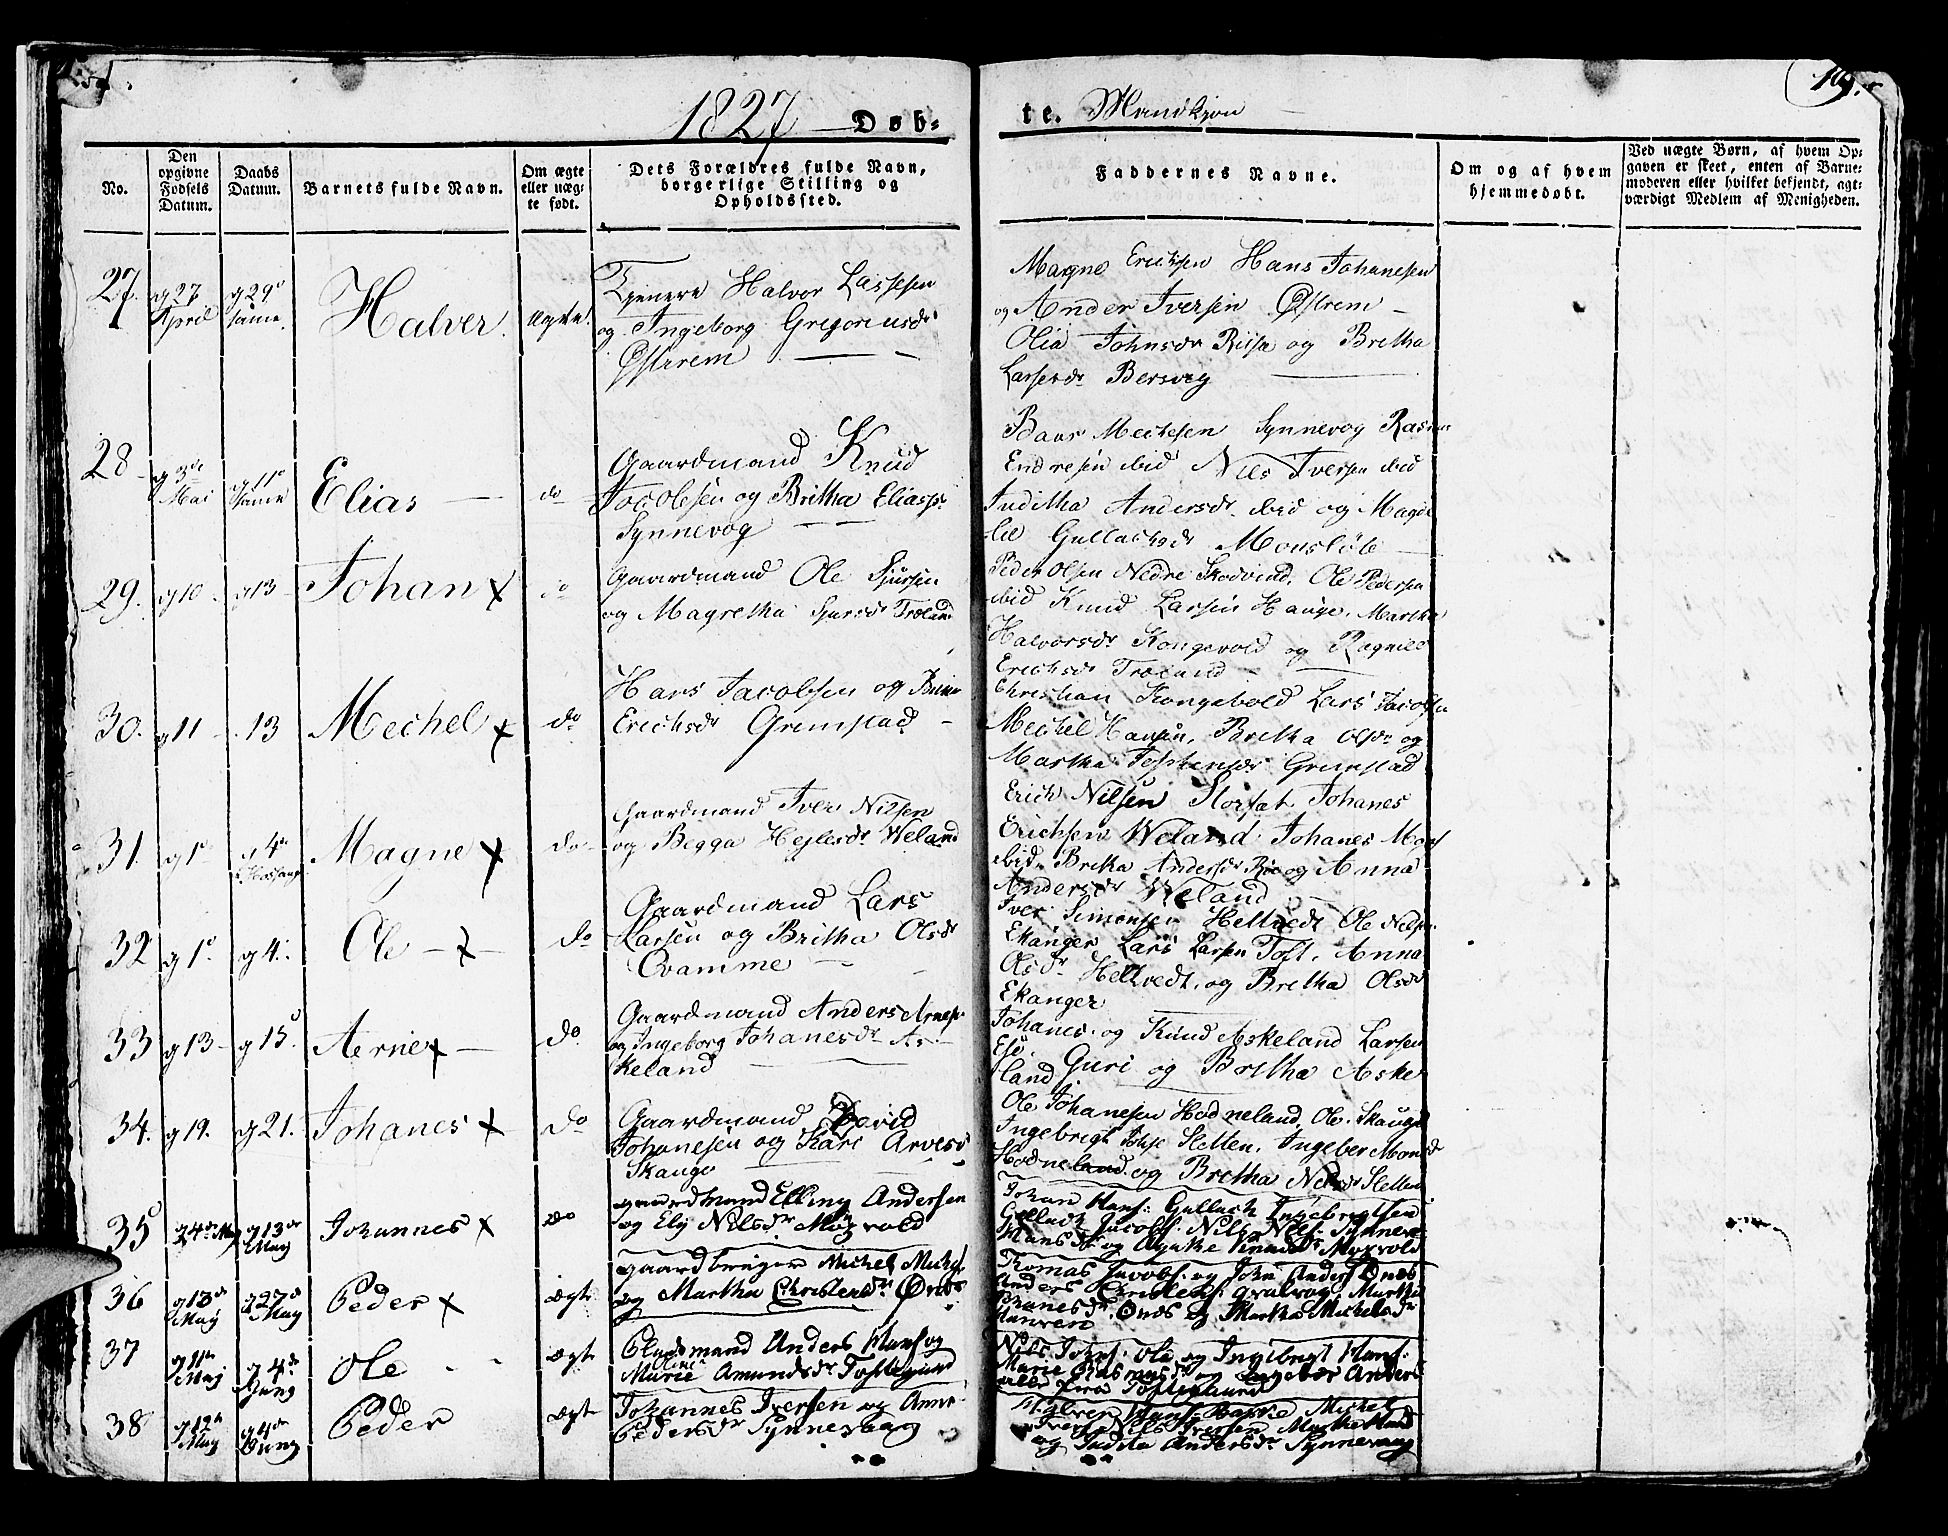 1827 Døb-
te. Mandkjøn
19.
No.
Den opgivne Fødsels Datum.
Daabs Datum.
Barnets fulde Navn.
Om ægte eller uægte født.
Dets Forældres fulde Navn, borgerlige Stilling og Opholdssted.
Faddernes Navne.
Om og af hvem hjemmedøbt.
Ved uægte Børn, af hvem Opgaven er skeet, enten af Barnemoderen eller hvilket bekjendt, agtværdigt Medlem af Menigheden.
27. g 27 April
g 29 same.
Halver. Ægte.
Halvor Lassesen
og Ingeborg Gregoriusdr
Østrem
Magne Ericksen Hans Johanesen
og Ander Iversen Østrem
Olia Johnsdr Riisa og Bretha
Larsesdr Bersvig
28 g 3de Mai
g 11 same
Elias do
Gaardmand Knud
Jacobsen og Britha Eliasdr
Synnevog
Baar Mechesen Synnevog Rasm
Endresen ibid Nils Iversen ibid
Juditha Andersdr ibid og Magde
lie Gullachsdr Monsløb
29. g 10 g 13 Johan x do
Gaardmand Ole Sjursen
og Magretha Sjursdr Troland
Peder Olsen Nedre Skodvind, Ole Pedersen
ibid Knud Larsen Hauge, Martha
Halvorsdr Kongevold og Ragnild
Ericksdr Troland
30. g 11 13 Mechel x do
Hans Jacobsen og
Ericksdr Grimstad
Christian Kongevold Lars Jacobsen
Mechel Hansen, Bretha Olsdr og
Martha Tostensdr Grimstad
31. g 1 g 4
Magne x do
Gaardmand Iver Nilsen
og Begga Hejlesdr Weland
Erich Nilsen Storset Johanes
Erichsen Weland Johanes Mons
ibid Bretha Andersdr Rio og Anna
Andersdr Weland
32 g 1. g 4. Ole x do
Gaardmand Lars
Larsen og Britha Olsdr
Qvamme
Iver Simonsen Heltvedt Ole Nilsen
Ekanger Lars Larsen Toft, Anna
Olsdr Heltvedt, og Bretha Olsdr
Ekanger
33 g 13 g 15 Aerne x do
Gaardmand Anders Arnes
og Ingeborg Johanesdr As-
keland
Johanes og Knud Askeland Larsen
Guri og Bretha Aske
land
34. g 19. g 21. Johanes x do
Gaardmand David
Johanesen og Kari Arvesdr
Skauge
Ole Johanesen Hodneland, Ole Skauge
Ingebrigt Sletten, Ingeber Monsdr
Hodneland og Bretha Nilsdr Sletten
35 24de May g 13de May
Johannes x do
gaardmand Elling Andersen
og Ely Nilsdr Møxvold
Johan Hans: Gullach Ingebrigtsen
Gullach Jacobs: Nils Nils: Synneve
Hansdr og Agathe Knudsdr Moxvold
36 g 13de May g 27de May
Peder x ægt
gaardbruger Michel Michs
og Martha Christensdr Ønes
Thomas Jacobs: og John Anders Ønes
Anders Christens: Martha
Johanesdr Ønes og Martha Michelsdr
37 g 11te Maj g 4de Juny
Ole ægt
Pladsmand Anders Hans og
Marie Amundsdr Toftegaard
Nils Johns: Ole og Ingebrigt Hans:
Marie og Ingebor Anders
alle fra Toftegaard
38 g 12te May g 4de Juny
Peder ægt
Johannes Iversen og Anne
Pedersdr Synnevaag
Michel
Ivers: Nils Iversen Martha
og Judita Andersdr Synnevaag